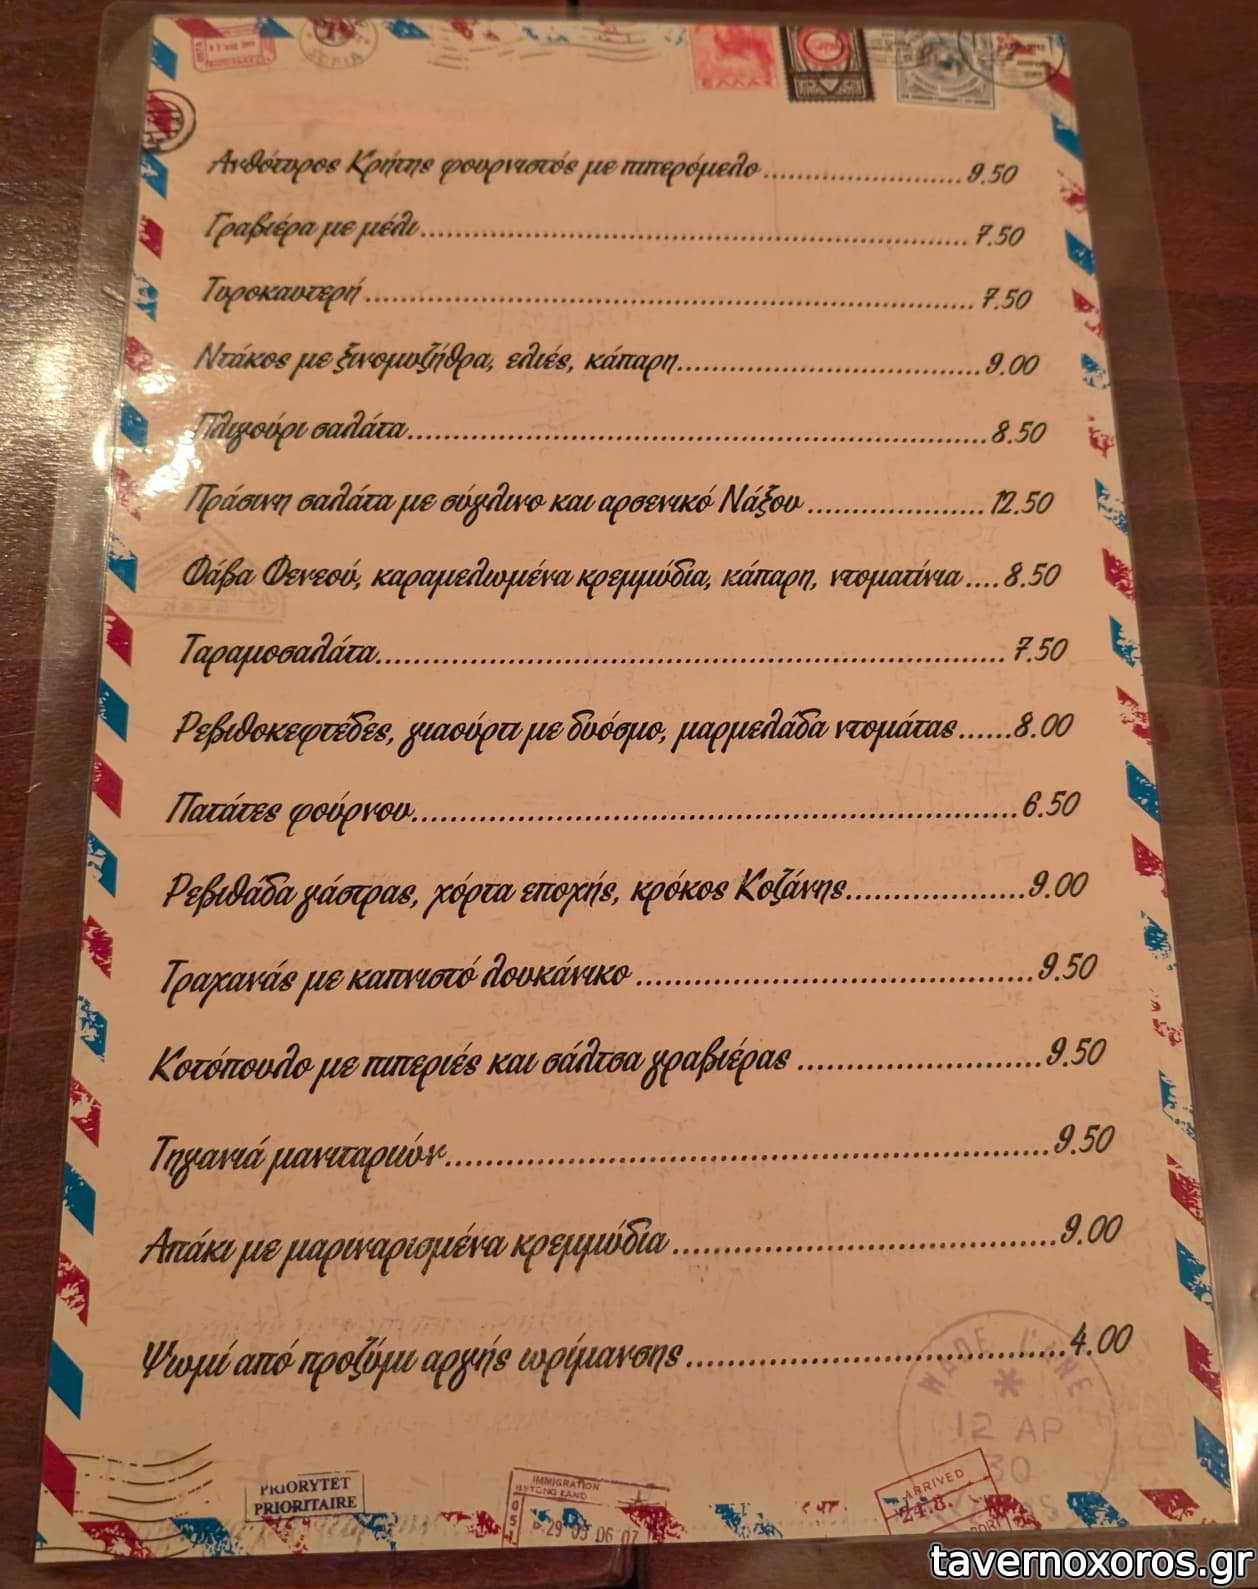 ΕΛΛΑΣ
Ανθότυρος Κρήτης φουρνιστός με πιπερόμελο....................9.50
Γραβιέρα με μέλι....................7.50
Τυροκαυτερή....................7.50
Ντάκος με ξινομυζήθρα, ελιές, κάπαρη....................9.00
Πλιγούρι σαλάτα....................8.50
Πράσινη σαλάτα με σύγλινο και αρσενικό Νάξου....................12.50
Φάβα Φενεού, καραμελωμένα κρεμμύδια, κάπαρη, ντοματίνια....8.50
Ταραμοσαλάτα....................7.50
Ρεβιθοκεφτέδες, γιαούρτι με δυόσμο, μαρμελάδα ντομάτας......8.00
Πατάτες φούρνου....................6.50
Ρεβιθάδα γάστρας, χόρτα εποχής, κρόκος Κοζάνης....................9.00
Τραχανάς με καπνιστό λουκάνικο....................9.50
Κοτόπουλο με πιπεριές και σάλτσα γραβιέρας....................9.50
Τηγανιά μανιταριών....................9.50
Απάκι με μαριναρισμένα κρεμμύδια....................9.00
Ψωμί από προζύμι αργής ωρίμανσης....................4.00
12 AP
30
PRIORYTET
PRIORITAIRE
IMMIGRATION
ARRIVED
tavernoxoros.gr